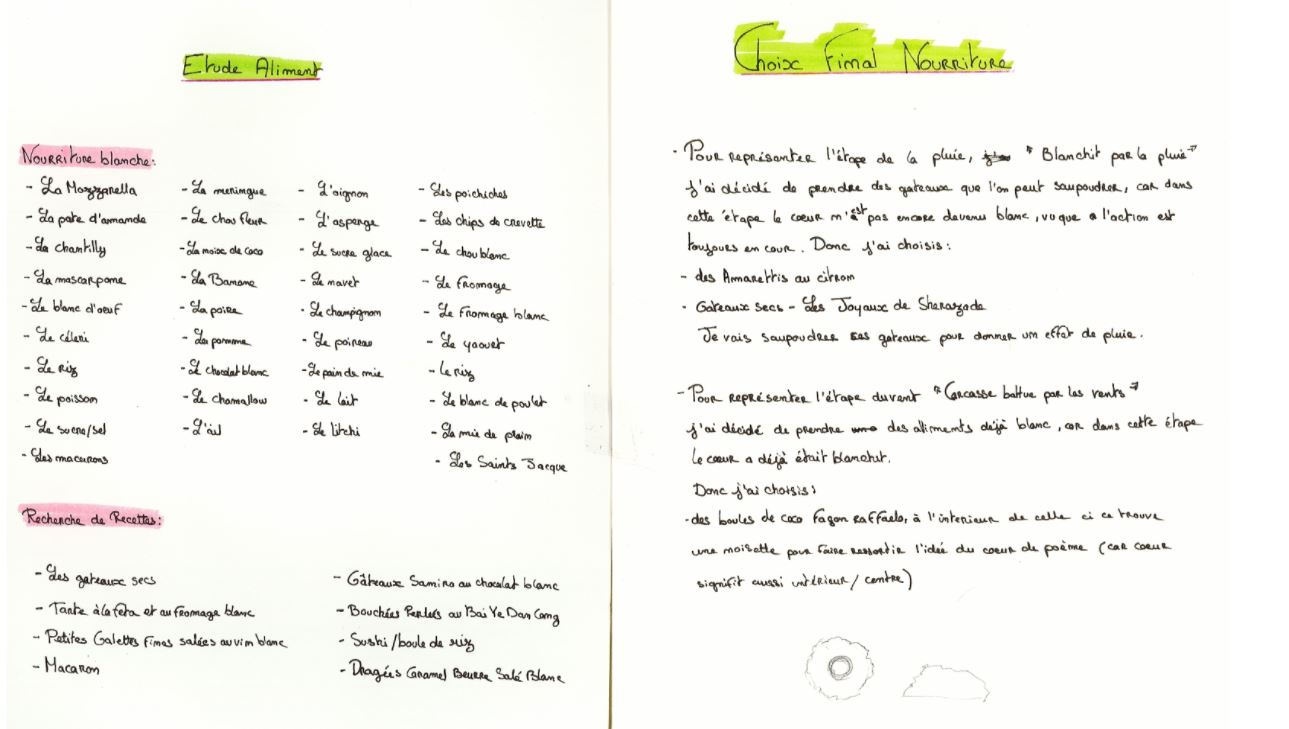 Etude Aliment
Nourriture blanche:
- La Mozzanella
- La pate d'amande
- La chantilly
- La mascarpone
- Le blanc d'oeuf
- Le céleri
- Le riz
- Le poisson
- Le sucre/sel
- Les macarons
- La meringue
- Le chou fleur
- La noix de coco
- La Banane
- La poire
- La pomme
- Le chocolat blanc
- Le chamallow
- L'ail
- L'oignon
- L'asperge
- Le sucre glace
- Le navet
- Le champignon
- Le poireau
- Le pain de mie
- Le lait
- Le litchi
- Les poichiches
- Les chips de crevette
- Le chou blanc
- Le Fromage
- Le Fromage blanc
- Le yaourt
- Le riz
- Le blanc de poulet
- La mie de plain
- Les Saints Jacque
Recherche de Recettes:
- Les gateaux secs
- Tarte à la feta et au fromage blanc
- Petites Galettes Fines salées au vin blanc
- Macaron
- Gâteaux Samira au chocolat blanc
- Bouchées Perlées au Bai Ye Dan Cong
- Sushi/boule de riz
- Dragées Caramel Beurre Salé Blanc
Choix Final Nourriture
- Pour représanter l'étape de la pluie, "Blanchit par la pluie"
j'ai décidé de prendre des gateaux que l'on peut saupoudrer, car dans
cette étape le coeur n'est pas encore devenu blanc, vu que l'action est
toujours en cour. Donc j'ai choisis:
- des Amarettis au citron
- Gateaux secs - Les Joyaux de Sherazade
Je vais saupoudrer ses gateaux pour donner un effet de pluie.
- Pour représenter l'étape du vent "Carcasse battue par les vents"
j'ai décidé de prendre des aliments dejà blanc, car dans cette étape
le coeur a déjà était blanchit.
Donc j'ai choisis:
- des boules de coco façon Raffaelo, à l'interieur de celle ci ce trouve
une noisette pour faire ressortir l'idée du coeur de poème (car coeur
signifit aussi intérieur/centre)